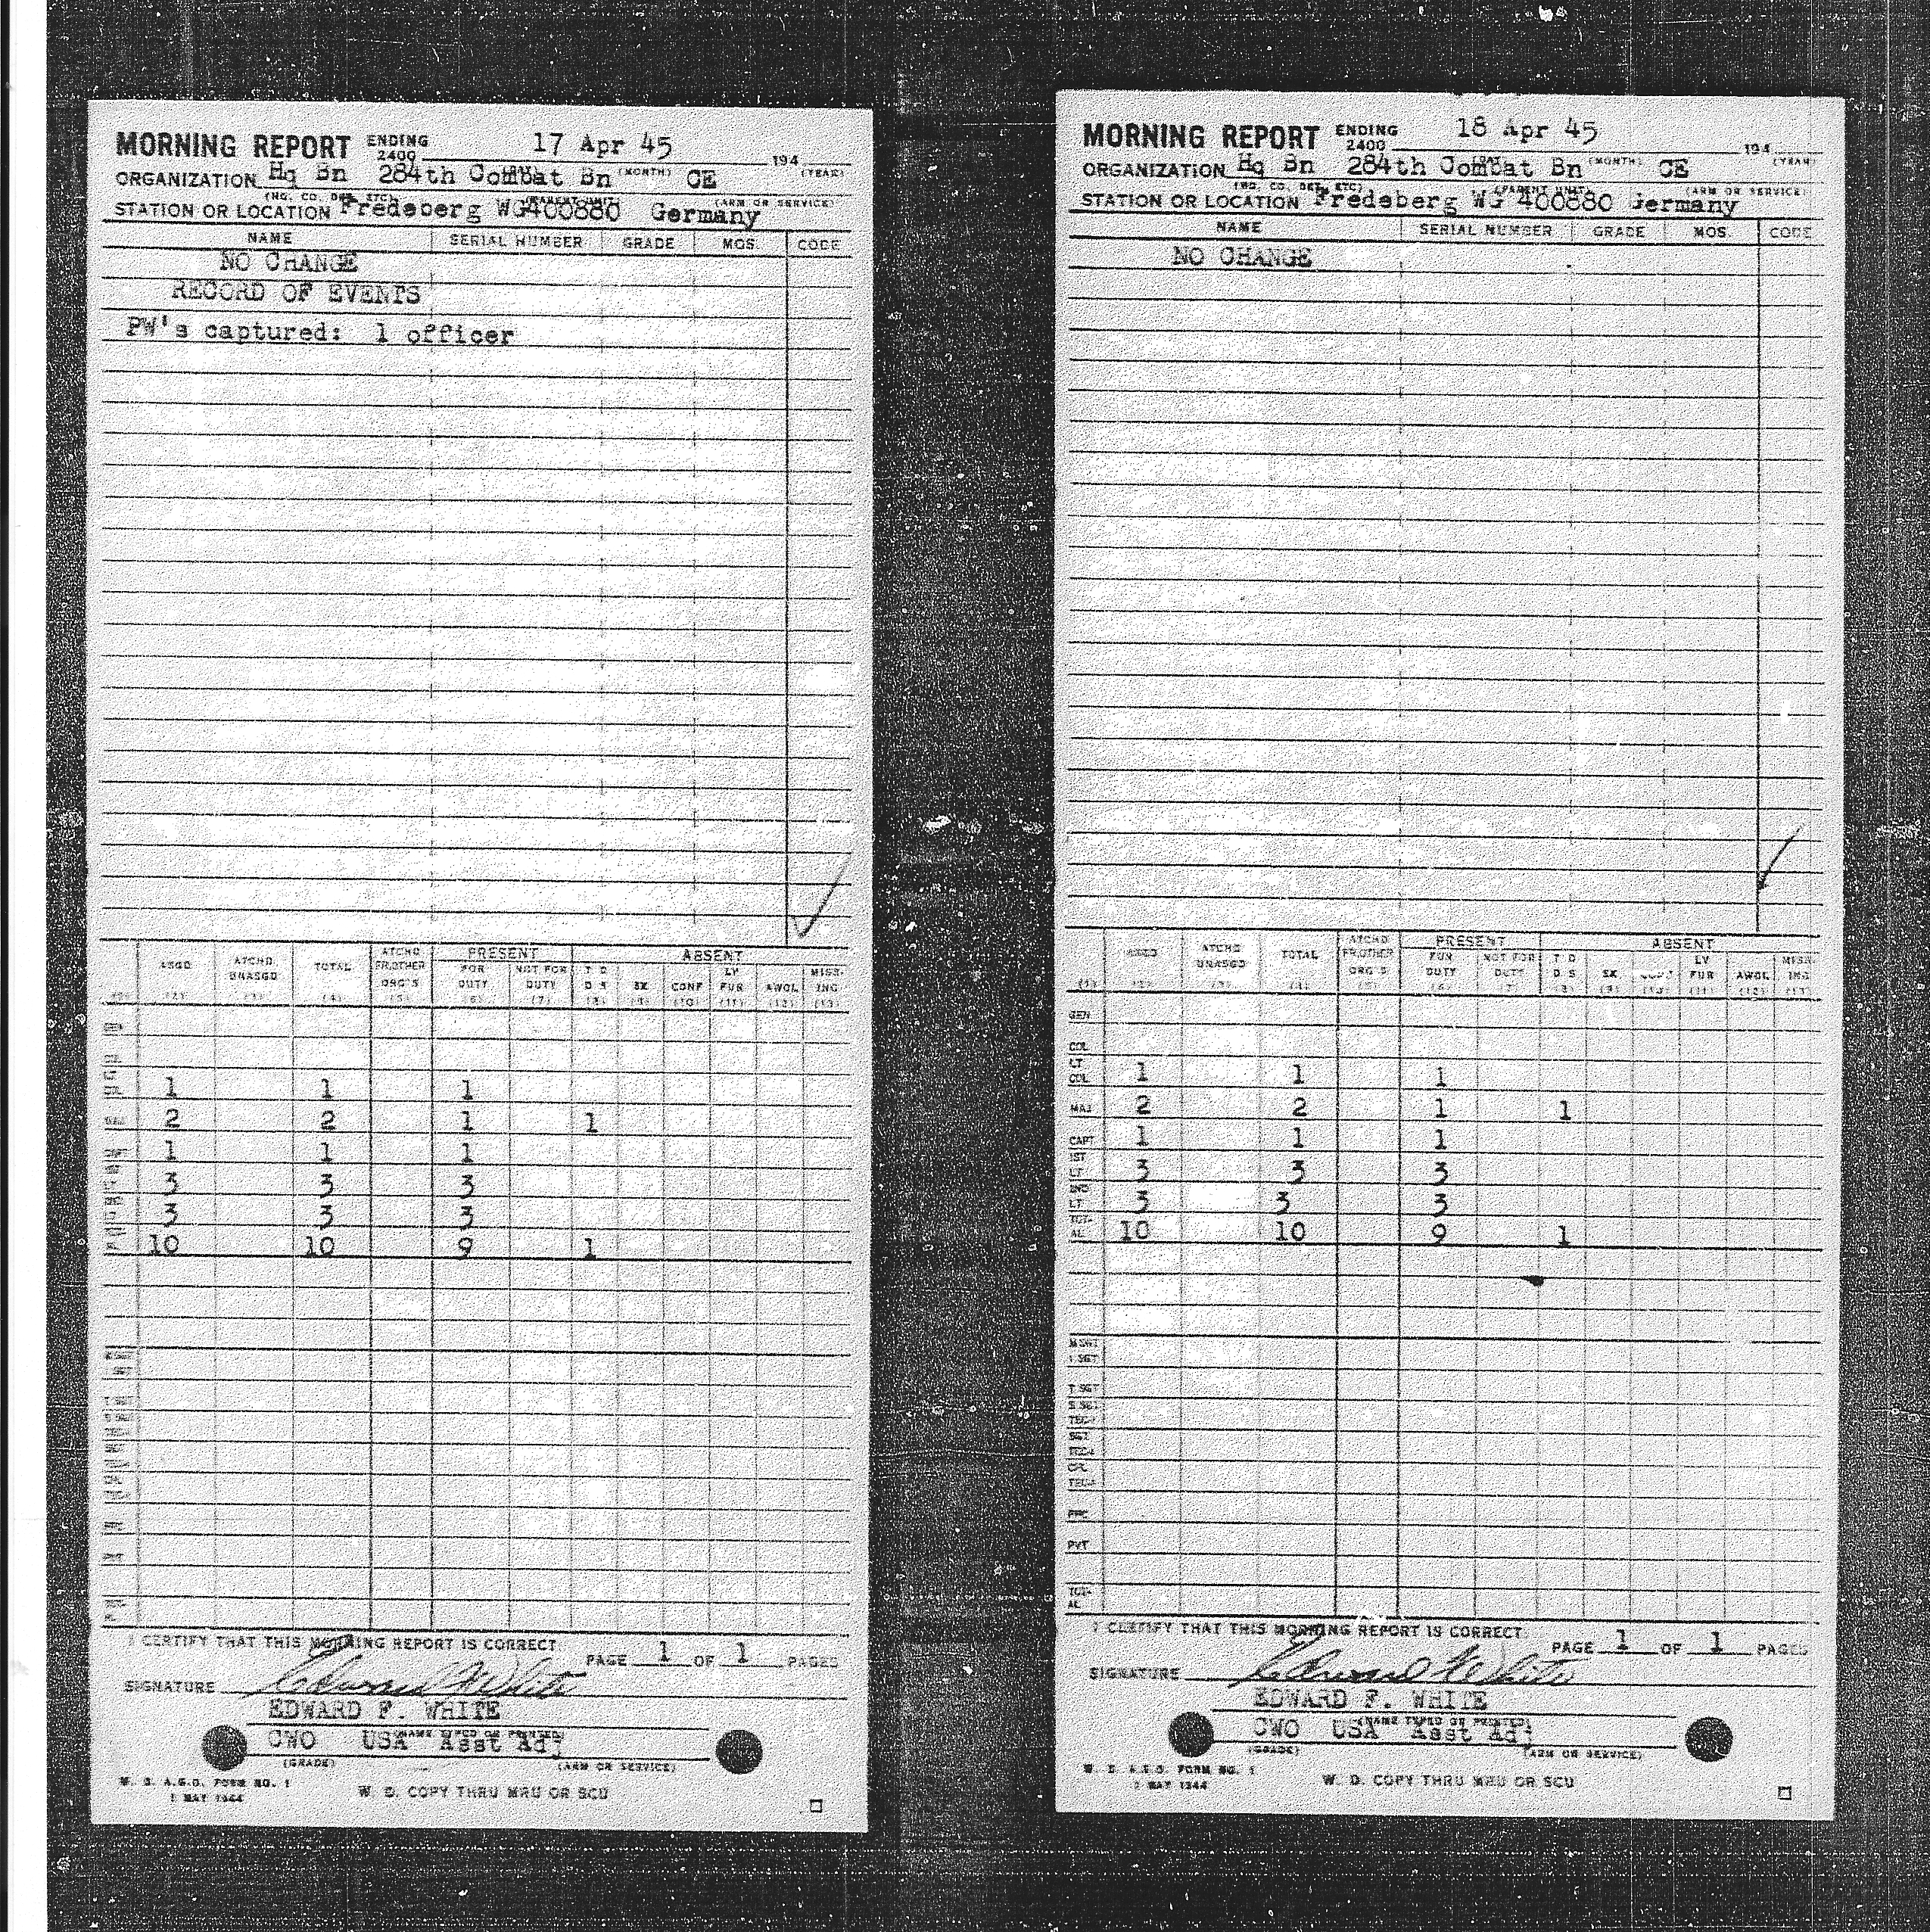 MORNING REPORT ENDING 2400 17 Apr 45 194
(DAY) (MONTH) (YEAR)
ORGANIZATION Hq Bn 284th Combat Bn CE
(HQ. CO. DET. ETC.) (PARENT UNIT) (ARM OR SERVICE)
STATION OR LOCATION Fredeberg WG400880 Germany
NAME SERIAL NUMBER GRADE MOS. CODE
NO CHANGE
RECORD OF EVENTS
PW's captured: 1 officer
PRESENT ABSENT
ASGD ATCHD UNASGD TOTAL ATCHD FR.OTHER ORG'S FOR DUTY NOT FOR DUTY T D D S SK CONF LV FUR AWOL MISS-ING
(2) (3) (4) (5) (6) (7) (8) (9) (10) (11) (12) (13)
1 1 1
2 2 1 1
1 1 1
3 3 3
3 3 3
10 10 9 1
I CERTIFY THAT THIS MORNING REPORT IS CORRECT
PAGE 1 OF 1 PAGES
SIGNATURE Edward F White
EDWARD F. WHITE
(NAME TYPED OR PRINTED)
CWO USA Asst Adj
(GRADE) (ARM OR SERVICE)
W. D. A.G.O. FORM NO. 1
1 MAY 1944
W. D. COPY THRU MRU OR SCU
MORNING REPORT ENDING 2400 18 Apr 45 194
(DAY) (MONTH) (YEAR)
ORGANIZATION Hq Bn 284th Combat Bn CE
(HQ. CO. DET. ETC.) (PARENT UNIT) (ARM OR SERVICE)
STATION OR LOCATION Fredeberg WG 400880 Germany
NAME SERIAL NUMBER GRADE MOS. CODE
NO CHANGE
PRESENT ABSENT
ASGD ATCHD UNASGD TOTAL ATCHD FR.OTHER ORG'S FOR DUTY NOT FOR DUTY T D D S SK CONF LV FUR AWOL MISS-ING
(1) (2) (3) (4) (5) (6) (7) (8) (9) (10) (11) (12) (13)
GEN
COL
LT COL 1 1 1
MAJ 2 2 1 1
CAPT 1 1 1
1ST LT 3 3 3
2ND LT 3 3 3
TOT-AL 10 10 9 1
M SGT
1 SGT
T SGT
S SGT
TEC-3
SGT
TEC-4
CPL
TEC-5
PFC
PVT
TOT-AL
I CERTIFY THAT THIS MORNING REPORT IS CORRECT
PAGE 1 OF 1 PAGES
SIGNATURE Edward F White
EDWARD F. WHITE
(NAME TYPED OR PRINTED)
CWO USA Asst Adj
(GRADE) (ARM OR SERVICE)
W. D. A.G.O. FORM NO. 1
1 MAY 1944
W. D. COPY THRU MRU OR SCU